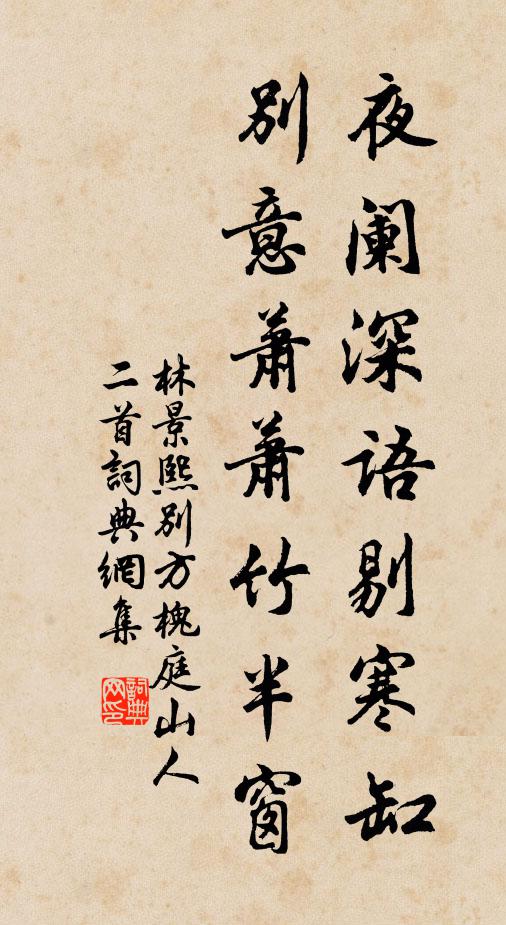 夜阑深语剔寒缸
别意萧萧竹半窗
林景熙别方槐庭山人
二首詞典網集
詞典网印